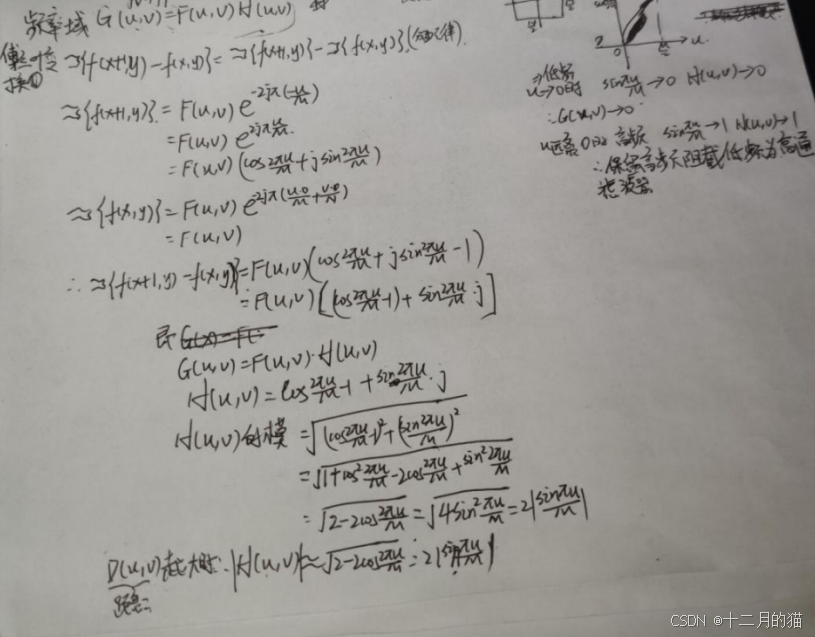 频率域 G(u,v)=F(u,v)H(u,v)
ℑ{f(x+1,y)-f(x,y)}=ℑ{f(x+1,y)}-ℑ{f(x,y)}
ℑ{f(x+1,y)}=F(u,v)e
=F(u,v)e
=F(u,v)(cos2πu/M+jsin2πu/M)
ℑ{f(x,y)}=F(u,v)e^{2jπ(u·0/M+v·0/N)}
=F(u,v)
∴ℑ{f(x+1,y)-f(x,y)}=F(u,v)(cos2πu/M+jsin2πu/M-1)
=F(u,v)[(cos2πu/M-1)+sin2πu/M·j]
即
G(u,v)=F(u,v)·H(u,v)
H(u,v)=cos2πu/M-1+sin2πu/M·j
H(u,v)的模=√((cos2πu/M-1)²+(sin2πu/M)²)
=√(1+cos²2πu/M-2cos2πu/M+sin²2πu/M)
=√(2-2cos2πu/M)=√(4sin²πu/M)=2|sinπu/M|
D(u,v)越大时,|H(u,v)|≈√(2-2cos2πu/M)=2|sinπu/M|
距离
2
0
u
低频
u→0时 sinπu/M→0 H(u,v)→0
∴G(u,v)→0
u远离0时 高频 sinπu/M→1 H(u,v)→1
∴保留高频阻截低频为高通
滤波器
CSDN @十二月的猫